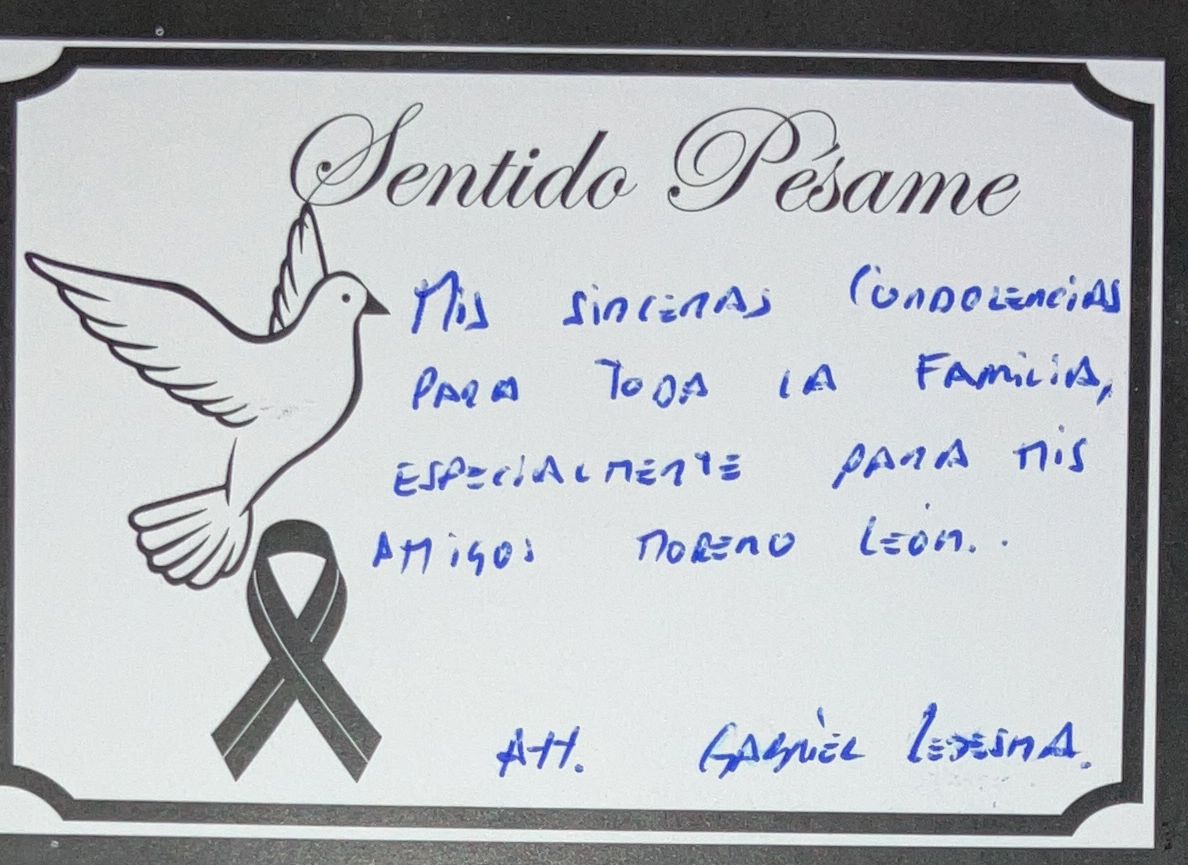 Sentido Pésame
Mis sinceras Condolencias
para toda la Familia,
especialmente para mis
Amigos Moreno León..
Att. Gabriel Ledesma.